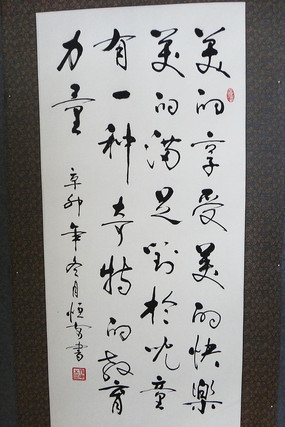 美的享受美的快樂
美的满足對於児童
有一种奇特的教育
力量
辛卯年冬月恒 書